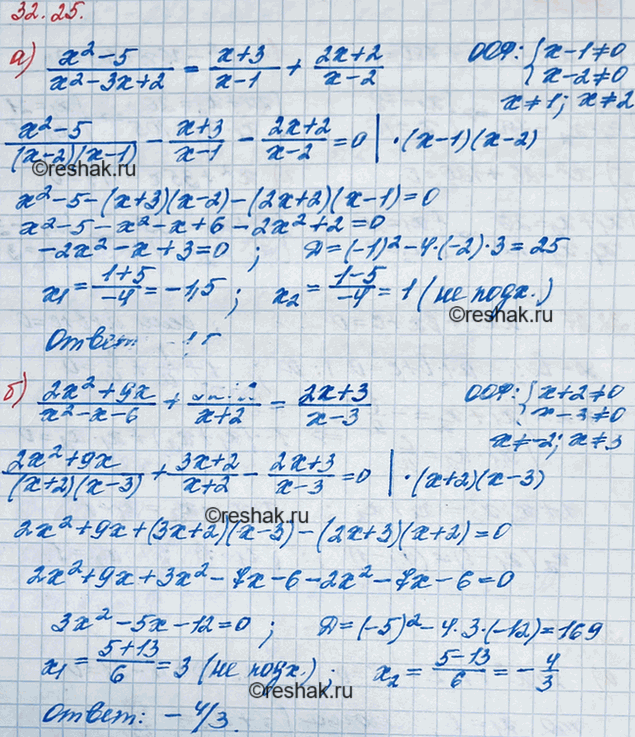 32.25.
а) (x²-5)/(x²-3x+2) = (x+3)/(x-1) + (2x+2)/(x-2) ООФ: { x-1≠0
x-2≠0
x≠1; x≠2
©reshak.ru
(x²-5)/((x-2)(x-1)) - (x+3)/(x-1) - (2x+2)/(x-2) = 0 | ·(x-1)(x-2)
©reshak.ru
x²-5-(x+3)(x-2)-(2x+2)(x-1)=0
x²-5-x²-x+6-2x²+2=0
-2x²-x+3=0; Д=(-1)²-4·(-2)·3=25
x₁=(1+5)/-4=-1,5; x₂=(1-5)/-4=1 (не подх.)
©reshak.ru
Ответ:
б) (2x²+9x)/(x²-x-6) + /(x+2) = (2x+3)/(x-3) ООФ: { x+2≠0
x-3≠0
x≠-2; x≠3
(2x²+9x)/((x+2)(x-3)) + (3x+2)/(x+2) - (2x+3)/(x-3) = 0 | ·(x+2)(x-3)
©reshak.ru
2x²+9x+(3x+2)(x-3)-(2x+3)(x+2)=0
2x²+9x+3x²-7x-6-2x²-7x-6=0
3x²-5x-12=0; Д=(-5)²-4·3·(-12)=169
x₁=(5+13)/6=3 (не подх.); x₂=(5-13)/6=-4/3
©reshak.ru
Ответ: -4/3.